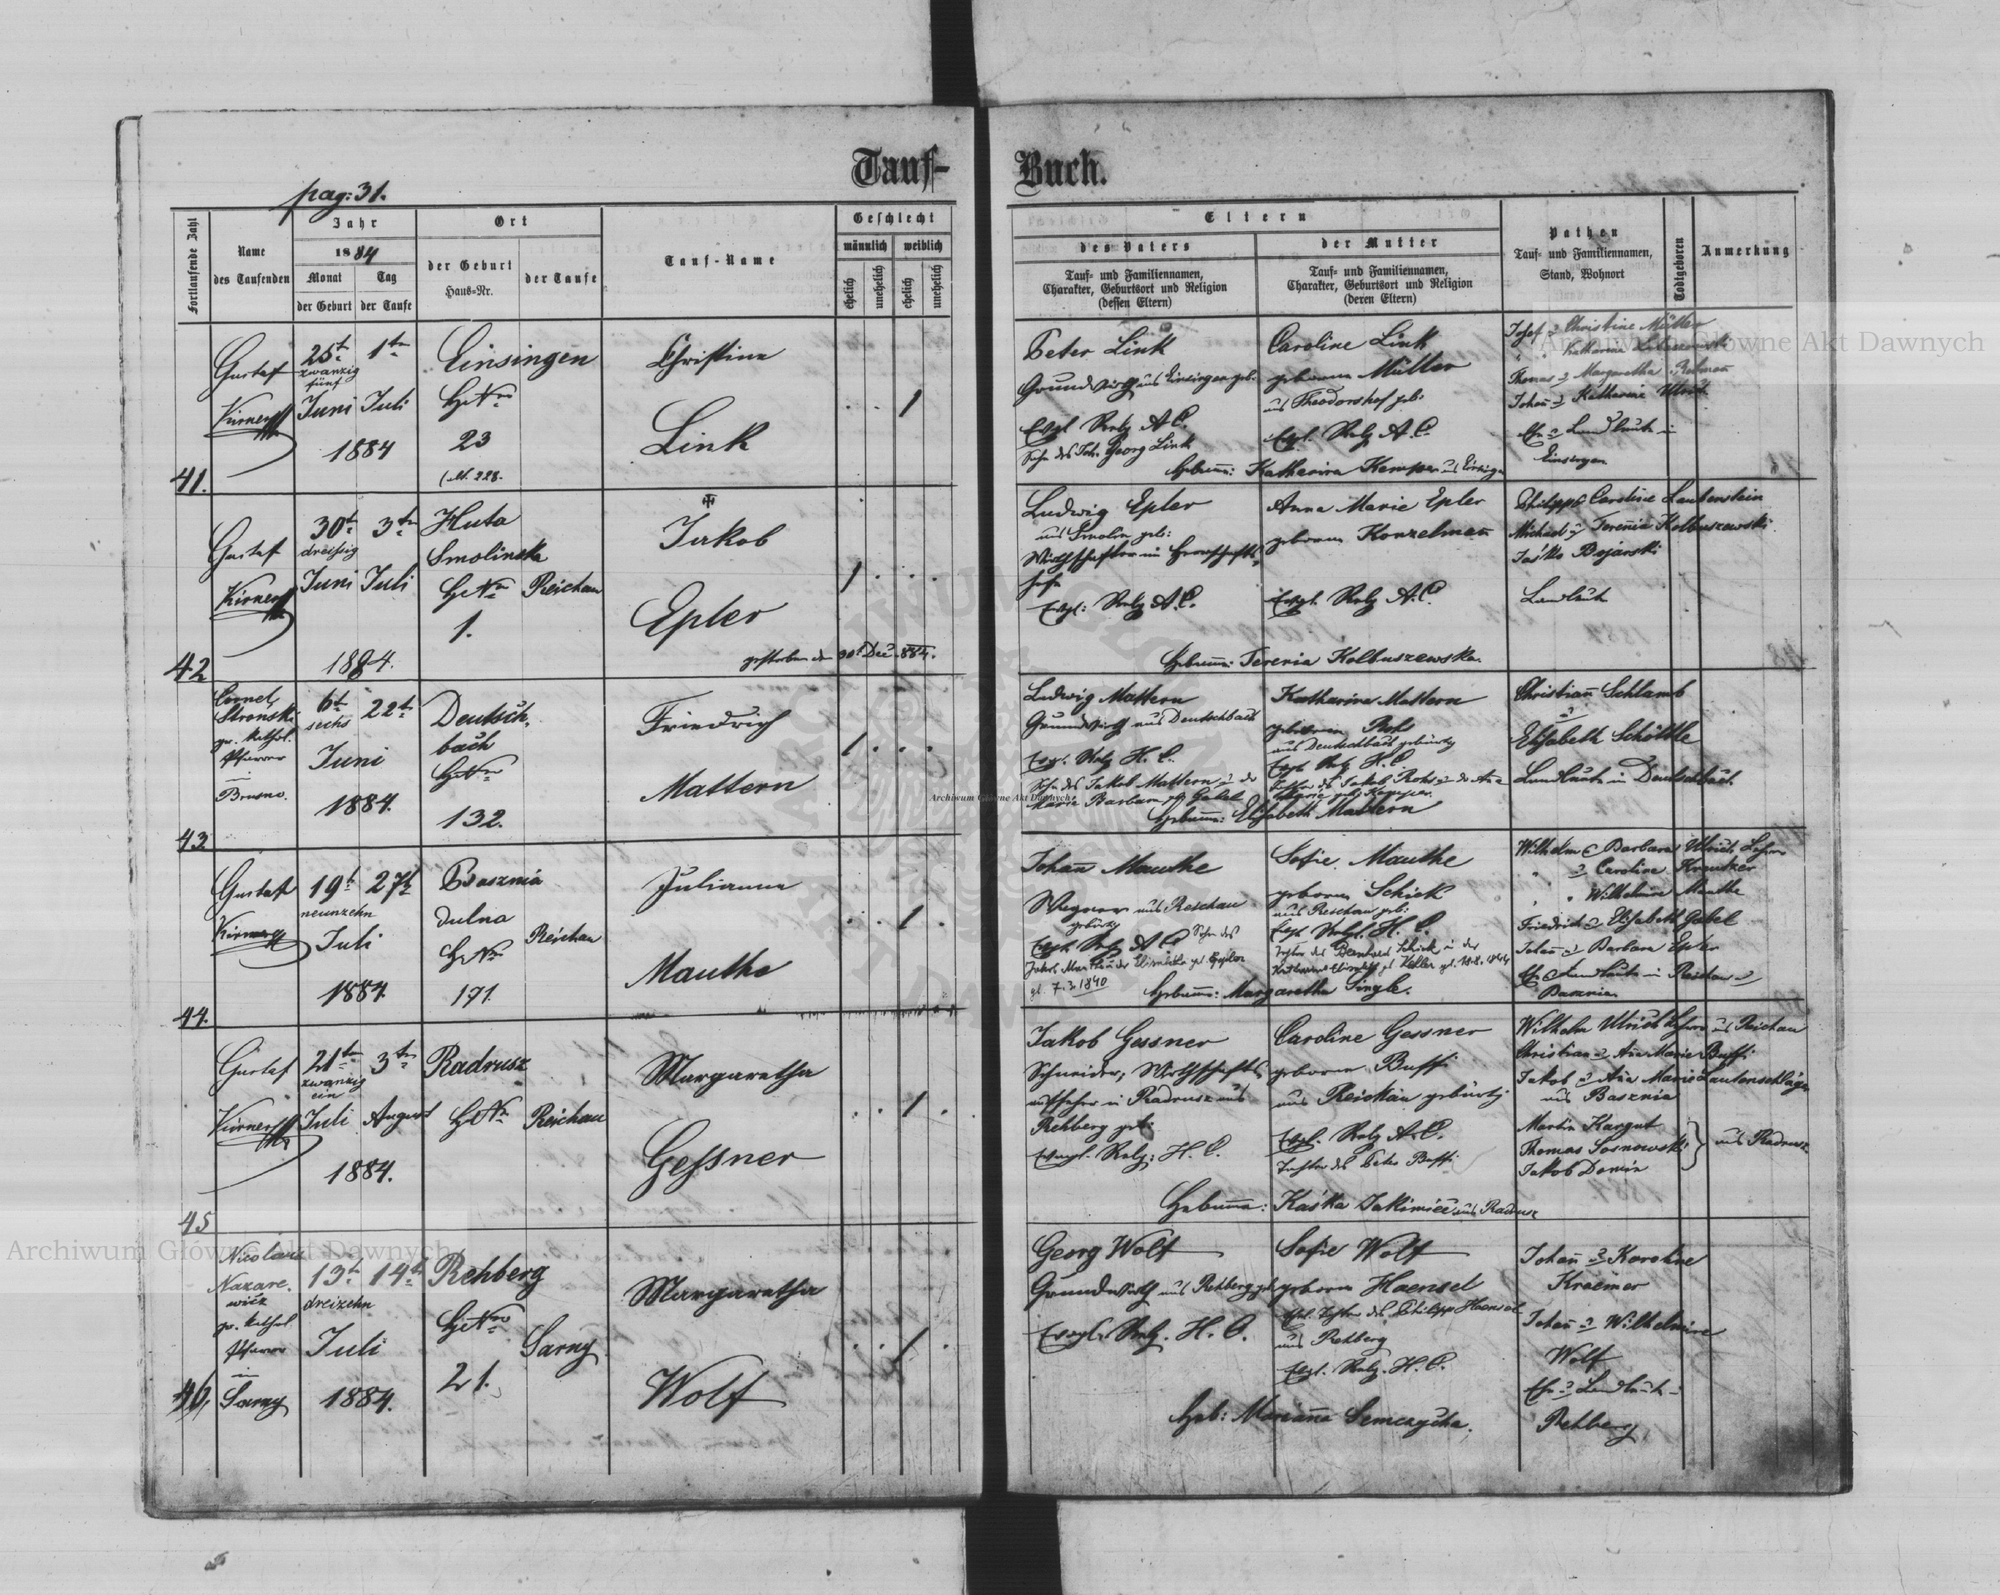 Tauf-Buch.
pag: 31.
Fortlaufende Zahl
Name
des Taufenden
Jahr
1884
Monat
der Geburt
Tag
der Taufe
Ort
der Geburt
Haus-Nr.
der Taufe
Tauf-Name
Geschlecht
männlich
weiblich
ehelich
unehelich
ehelich
unehelich
Eltern
des Vaters
Tauf- und Familiennamen,
Charakter, Geburtsort und Religion
(dessen Eltern)
der Mutter
Tauf- und Familiennamen,
Charakter, Geburtsort und Religion
(deren Eltern)
Pathen
Tauf- und Familiennamen,
Stand, Wohnort
Todtgeboren
Anmerkung
41.
Gustaf
25t
zwanzig
fünf
Juni
1884
1tn
Juli
Einsingen
HNro
23
Christina
Link
1
Peter Link
Grundwirth aus Einsingen geb.
Evgl Relg A. C.
Sohn des Joh. Georg Link
Caroline Link
geborene Müller
aus Theodorshof geb:
Evgl. Relg A. C.
Hebamme: Katharina Kemper aus Einsingen
Josef & Christine Müller
Johann & Katharina
Einsingen
42
Gustaf
30t
dreißig
Juni
1884.
3tn
Juli
Huta
Smolinska
HNro
1.
Reichau
Jakob
Epler
gestorben den 30t Dec. 884.
1
Ludwig Epler
aus Smolin geb:
Evgl: Relg A. C.
Anna Marie Epler
geborene Konzelmann
Evgl. Relg A. C.
Hebamme: Terenia Kolbuszewska.
Philipp & Caroline Lautenstein
Michael & Terenia Kolbuszewski
Jaśko Bojarski
Landleute
43
Cornel
Stronski
gr. kathol.
Pfarrer
in
Brusno.
6t
sechs
Juni
1884.
22tn
Deutsch-
bach
HNro
132.
Friedrich
Mattern
1
Ludwig Mattern
Grundwirth aus Deutschbach
Evgl. Relg H. C.
Sohn des Jakob Mattern u der
Marie Barbara geb Gabel
Katharina Mattern
aus Deutschbach gebürtig
Evgl. Relg H. C.
Hebamme: Elisabeth Mattern
Christian Schlamb
&
Elisabeth Schöttle
Landleute in Deutschbach
44.
Gustaf
19t
neunzehn
Juli
1884.
27tn
Basznia
dulna
HNro
171.
Reichau
Julianna
Mauthe
1
Johann Mauthe
Wagner aus Reichau
gebürtig
Evgl. Relg A C Sohn des
gb. 7.3.1840
Sofie Mauthe
geborene Schick
aus Reichau geb:
Evgl Relgl. H. C.
Hebamme: Margaretha Single.
Wilhelm & Barbara Ulrich Lehrer
" & Caroline Kreutzer
" " Wilhelmine Mauthe
Friedrich & Elisabeth Gabel
Johann & Barbara Epler
Landleute in Reichau &
Basznia
45
Gustaf
21tn
zwanzig
ein
Juli
1884.
3tn
August
Radrusz
HNro
Reichau
Margaretha
Gessner
1
Jakob Gessner
Schneider, Wirthschafts
aufseher in Radrusz aus
Rehberg geb:
Evangl. Relg: H. C.
Caroline Gessner
geborene Buffi
aus Reichau gebürtig
Evgl. Relg A. C.
Tochter des Peter Buffi
Hebamme: Kaśka Jakimiec aus Radrusz
Wilhelm Ulrich Lehrer aus Reichau
Christian & Anna Marie Buffi
Jakob & Anna Marie Lautenschläger
aus Basznia
Martin Kargut
Thomas Sosnowski
Jakob Domin
aus Radrusz
46.
Nicolaus
Nazare-
wicz
gr. kathol
Pfarrer
in
Sarny
13t
dreizehn
Juli
1884.
14tn
Rehberg
HNro
21.
Sarny
Margaretha
Wolf
1
Georg Wolf
Grundwirth aus Rehberg geb.
Evgl. Relg. H. C.
Sofie Wolf
geborene Haensel
ehel. Tochter des Philipp Haensel
aus Rehberg
Evgl. Relg. H. C.
Heb: Marianna Semczycha.
Johann & Karoline
Kraemer
Johann & Wilhelmine
Wolf
Rehberg
Archiwum Główne Akt Dawnych
Archiwum Główne Akt Dawnych
Archiwum Główne Akt Dawnych